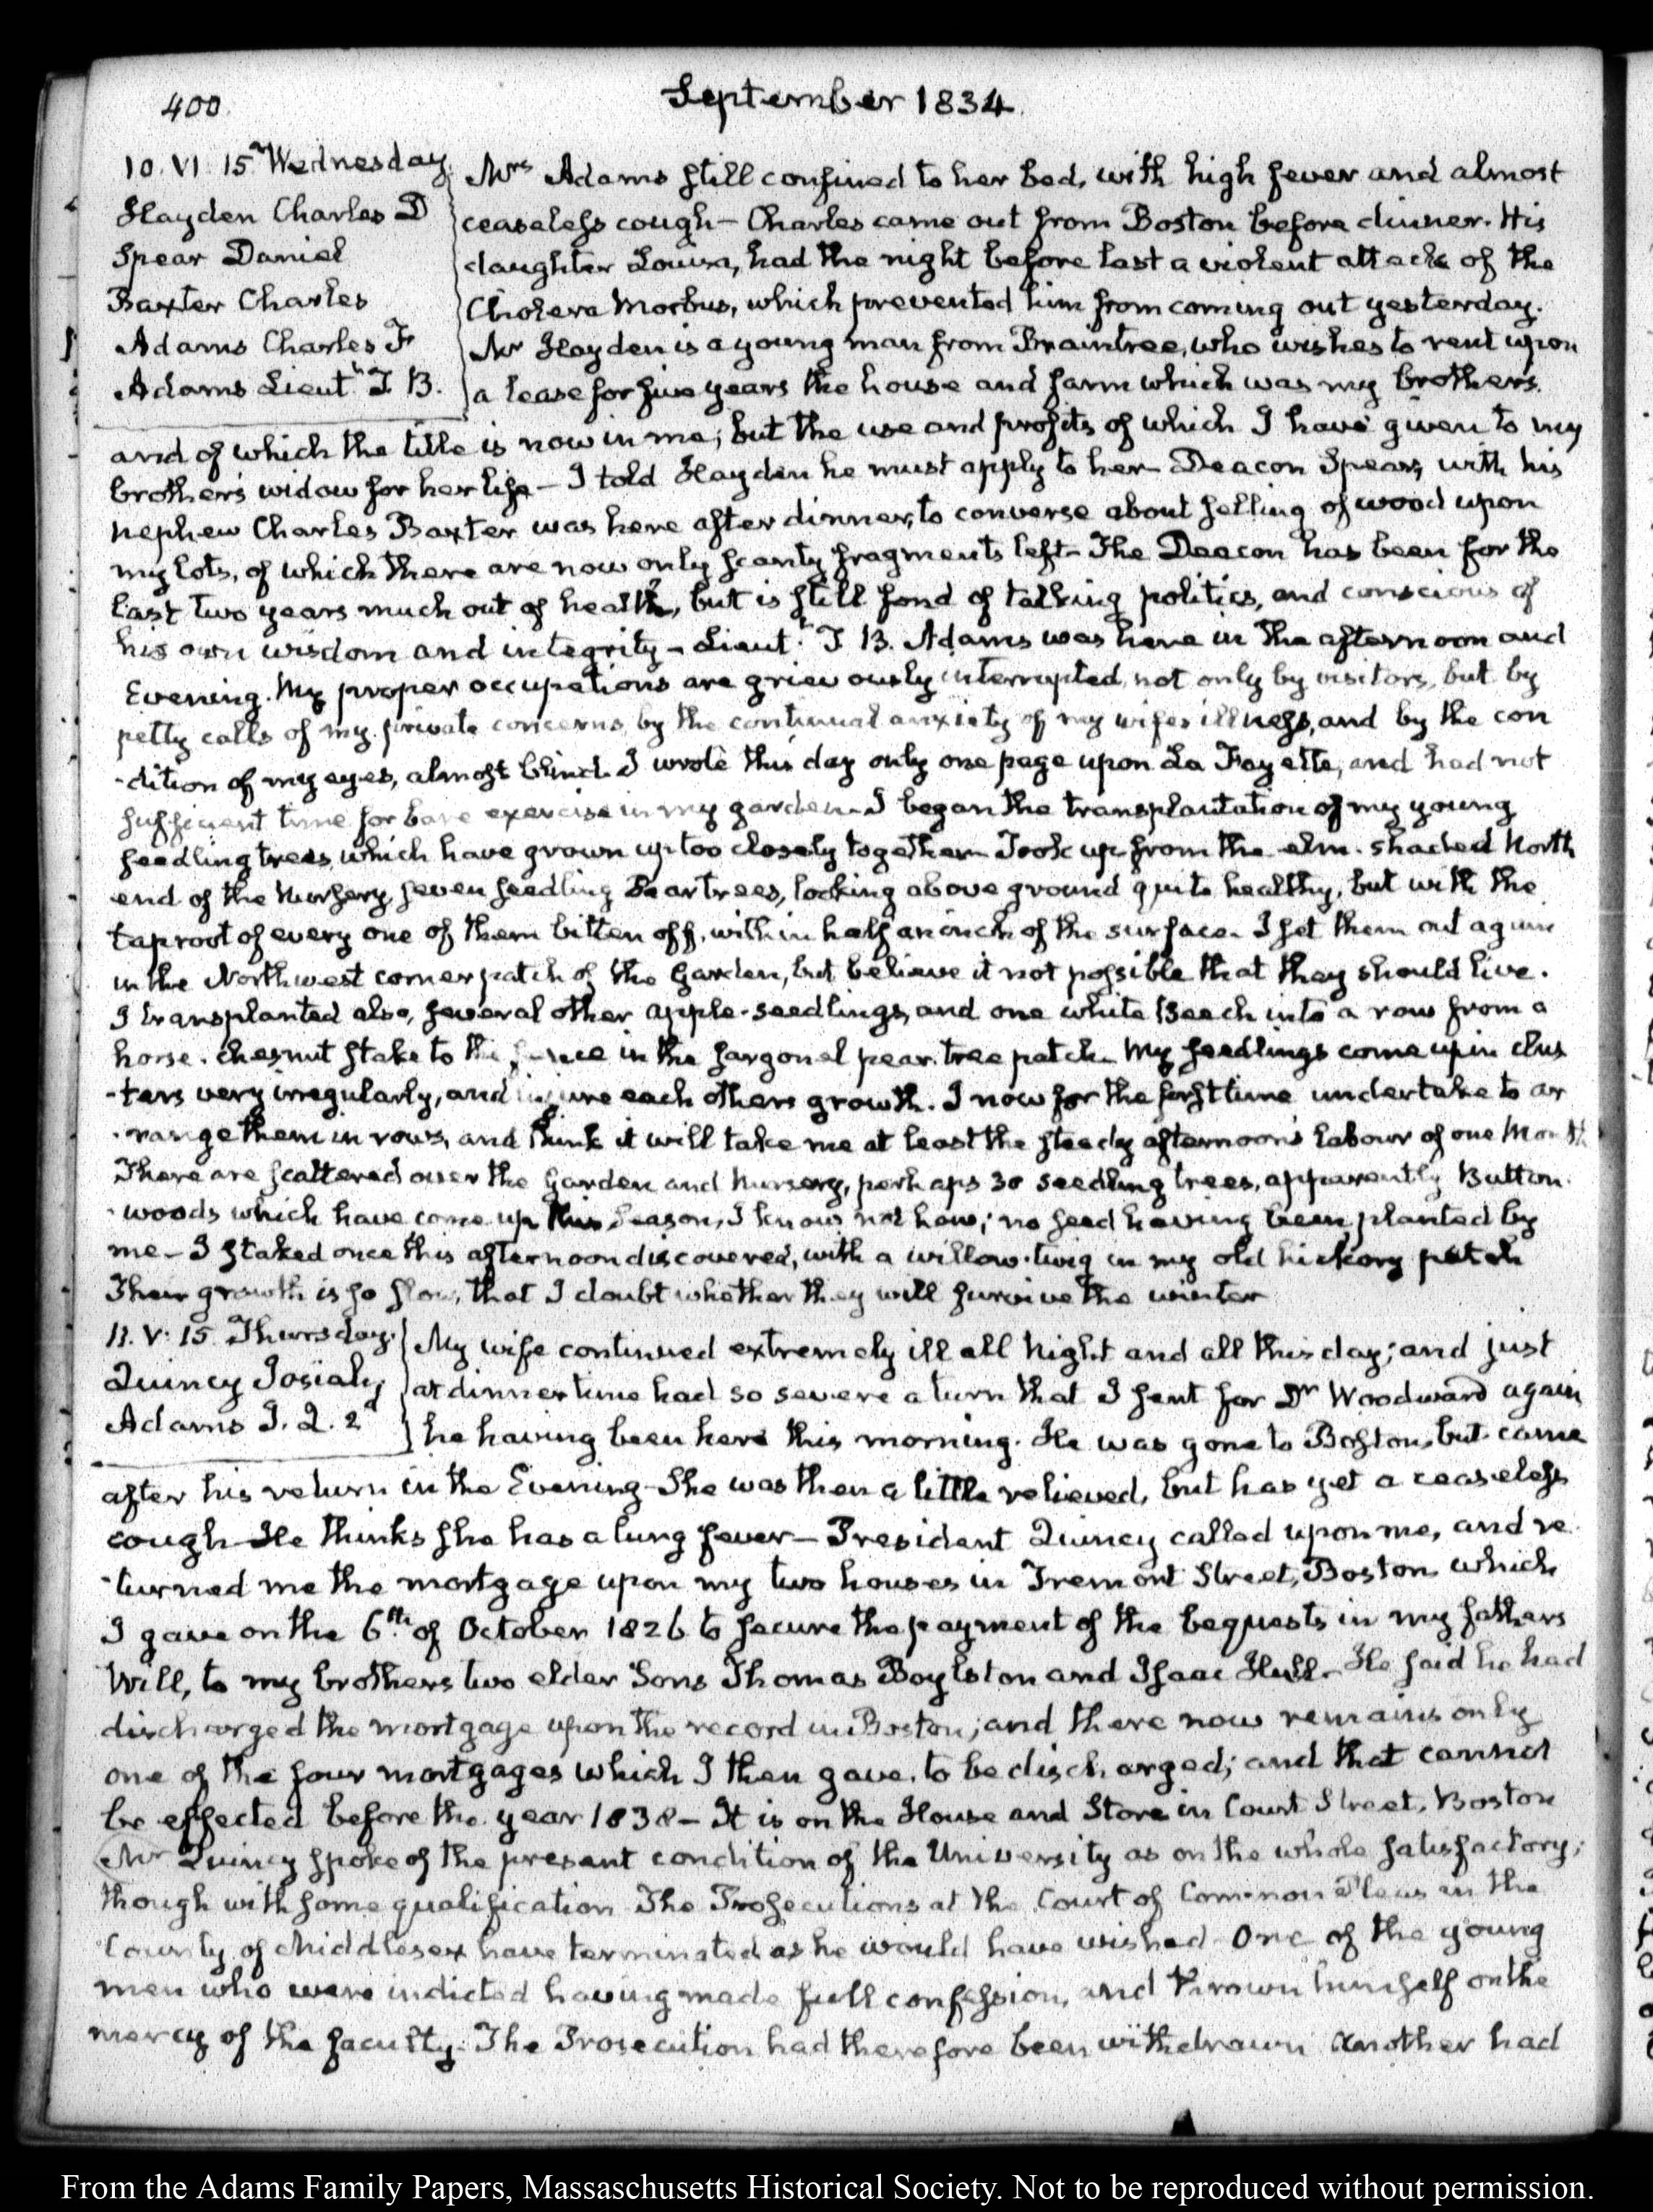 400
September 1834.
10. VI. 15m Wednesday.
Hayden Charles D
Spear Daniel
Baxter Charles
Adams Charles F
Adams Lieutt. T B.
Mrs Adams still confined to her bed, with high fever and almost
ceaseless cough — Charles came out from Boston before dinner. His
daughter Louisa, had the night before last a violent attack of the
Cholera Morbus, which prevented him from coming out yesterday.
Mr Hayden is a young man from Braintree, who wishes to rent upon
a lease for five years the house and farm which was my brother's.
and of which the title is now in me; but the use and profits of which I have given to my
brother's widow for her life — I told Hayden he must apply to her — Deacon Spear, with his
nephew Charles Baxter was here after dinner, to converse about felling of wood upon
my lots, of which there are now only scanty fragments left — The Deacon has been for the
last two years much out of health, but is still fond of talking politics, and conscious of
his own wisdom and integrity — Lieutt. T B. Adams was here in the afternoon and
Evening. My proper occupations are grievously interrupted, not only by visitors, but by
petty calls of my private concerns, by the continual anxiety of my wife's illness, and by the con
-dition of my eyes, almost blind. I wrote this day only one page upon La Fayette, and had not
sufficient time for bare exercise in my garden — I began the transplantation of my young
seedling trees, which have grown up too closely together — Took up from the elm-shaded North
end of the Nursery, seven seedling Pear trees, looking above ground quite healthy, but with the
taproot of every one of them bitten off, within half an inch of the surface — I set them out again
in the Northwest corner patch of the Garden, but believe it not possible that they should live.
I transplanted also, several other apple-seedlings, and one white Beech into a row from a
horse-chesnut stake to the fence in the Jargonel pear-tree patch — My seedlings come up in clus
-ters very irregularly, and injure each others growth. I now for the first time undertake to ar
-range them in rows, and think it will take me at least the steady afternoon's labour of one Month
There are scattered over the Garden and Nursery, perhaps 30 seedling trees, apparently Button-
-woods which have come up this Season, I know not how; no seed having been planted by
me — I staked one this afternoon discovered, with a willow-twig in my old hickory patch
Their growth is so slow, that I doubt whether they will survive the winter
11. V: 15. Thursday.
Quincy Josiah
Adams J. Q. 2d
My wife continued extremely ill all Night and all this day; and just
at dinner time had so severe a turn that I sent for Dr Woodward again
he having been here this morning. He was gone to Boston, but came
after his return in the Evening — She was then a little relieved, but has yet a ceaseless
cough — He thinks she has a lung fever — President Quincy called upon me, and re
-turned me the mortgage upon my two houses in Tremont Street, Boston which
I gave on the 6th of October 1826 to secure the payment of the bequests in my fathers
Will, to my brothers two elder Sons Thomas Boylston and Isaac Hull — He said he had
discharged the mortgage upon the record in Boston; and there now remains only
one of the four mortgages which I then gave, to be discharged; and that cannot
be effected before the year 1838 — It is on the House and Store in Court Street, Boston
Mr Quincy spoke of the present condition of the University as on the whole satisfactory;
though with some qualification The Prosecutions at the Court of Common Pleas in the
County of Middlesex have terminated as he would have wished — One of the young
men who were indicted having made full confession, and thrown himself on the
mercy of the faculty. The Prosecution had therefore been withdrawn Another had
From the Adams Family Papers, Massachusetts Historical Society. Not to be reproduced without permission.